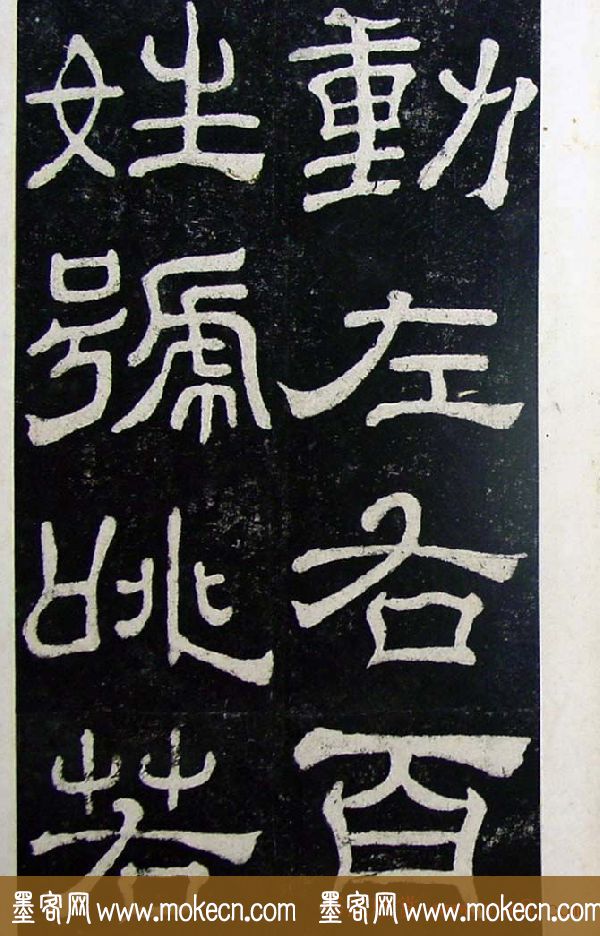 動左右百
姓號咷若
墨客网 www.mokecn.com 墨客网 www.mokecn.com